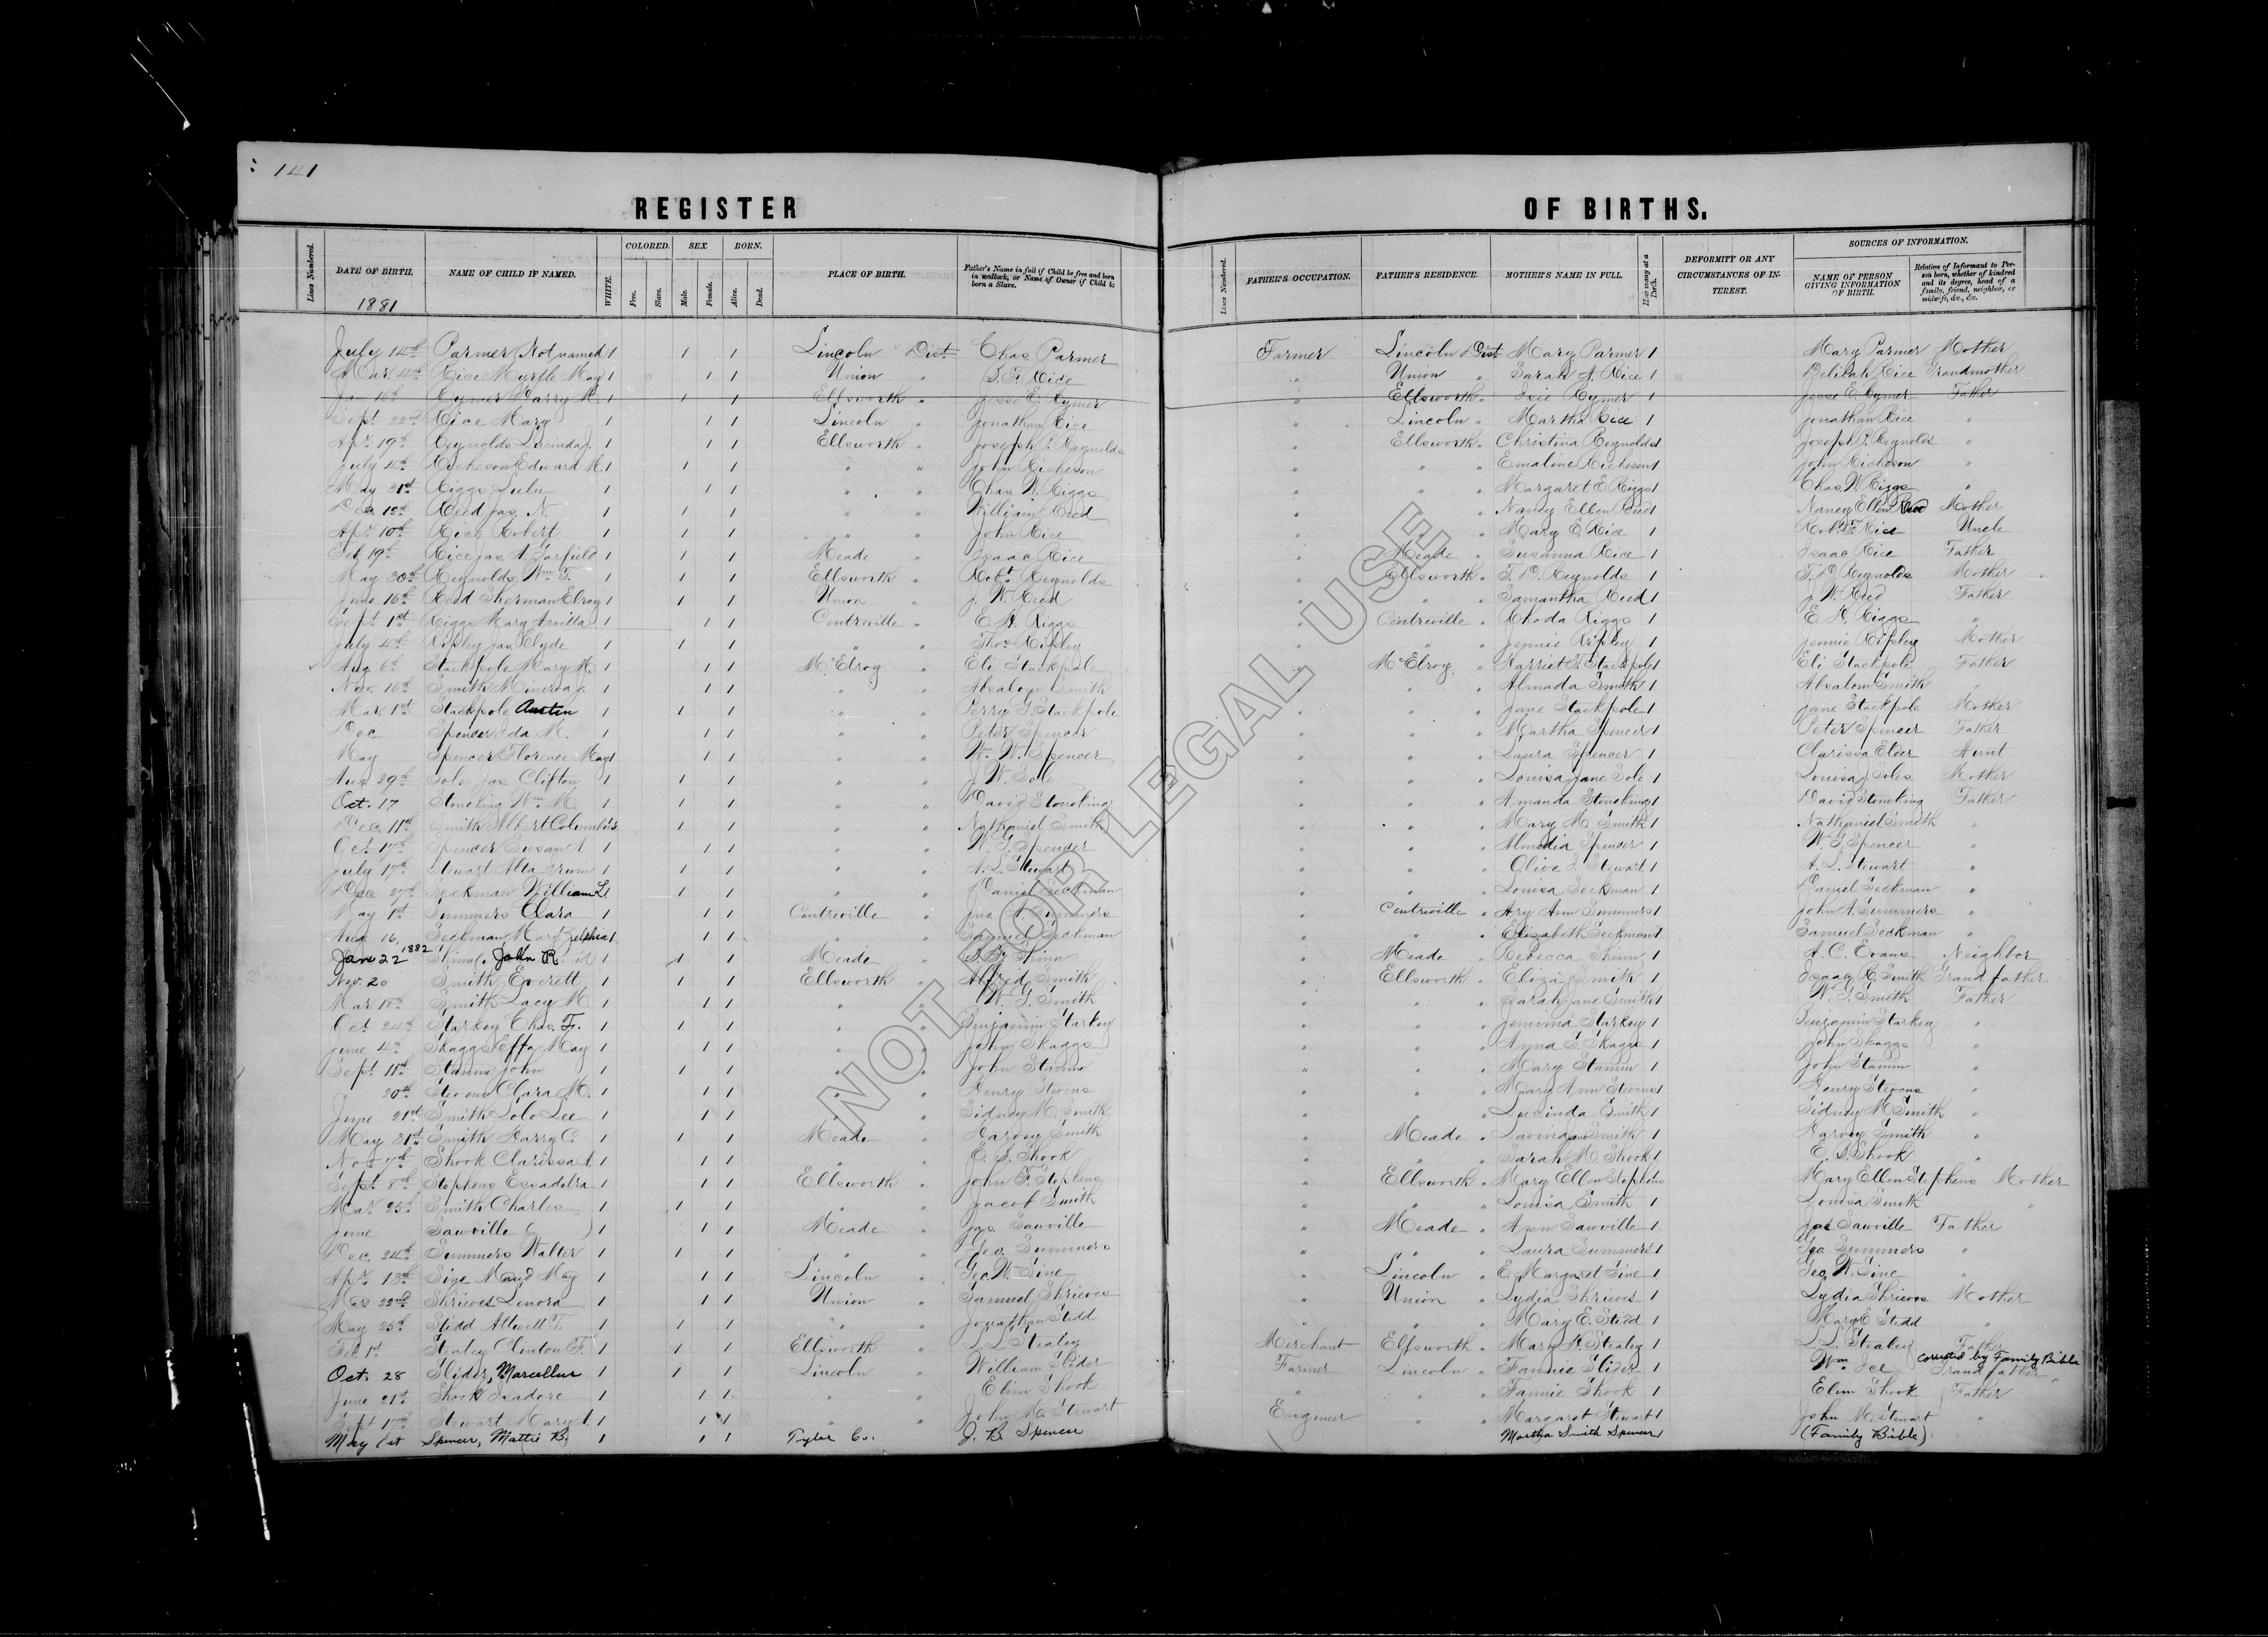 141
REGISTER OF BIRTHS.
Lines Numbered. DATE OF BIRTH. NAME OF CHILD IF NAMED. WHITE. COLORED. Free. Slave. SEX. Male. Female. BORN. Alive. Dead. PLACE OF BIRTH. Father's Name in full if Child be free and born in wedlock, or Name of Owner if Child be born a Slave. Lines Numbered. FATHER'S OCCUPATION. FATHER'S RESIDENCE. MOTHER'S NAME IN FULL. How many at a Birth. DEFORMITY OR ANY CIRCUMSTANCES OF INTEREST. SOURCES OF INFORMATION. NAME OF PERSON GIVING INFORMATION OF BIRTH. Relation of Informant to Person born, whether of kindred and its degree, head of a family, friend, neighbor, or midwife, &c., &c.
1881
July 14th Parmer Not named 1 1 1 Lincoln Dist Chas Parmer Farmer Lincoln Dist Mary Parmer 1 Mary Parmer Mother
Mar 4th Rice Myrtle May 1 1 1 Union " B. F. Rice " Union " Sarah A. Rice 1 Delilah Rice Grandmother
Jan 16th Rymer Harry 1 1 1 Ellsworth " Jesse E. Rymer " Ellsworth " Rymer 1 Jesse E. Rymer Father
Sept 22nd Rice Mary 1 1 1 Lincoln " Jonathan Rice " Lincoln " Martha Rice 1 Jonathan Rice "
Apr 19th Reynolds Lucinda J. 1 1 1 Ellsworth " Joseph P. Reynolds " Ellsworth " Christina Reynolds 1 Joseph P. Reynolds "
July 4th Richeson Edward M. 1 1 1 " " John Richeson " " " Emaline Richeson 1 John Richeson "
May 31st Riggs Lulu 1 1 1 " " Chas. W. Riggs " " " Margaret E Riggs 1 Chas. W. Riggs "
Dec 12th Reed Jas. N. 1 1 1 " " William Reed " " " Nancy Ellen Reed 1 Nancy Ellen Reed Mother
Apr 10th Rice Robert 1 1 1 " " John Rice " " " Mary E Rice 1 Robt. F. Rice Uncle
Feb 19th Rice Jas. A. Garfield 1 1 1 Meade " Isaac Rice " Meade " Susanna Rice 1 Isaac Rice Father
May 30th Reynolds Wm F. 1 1 1 Ellsworth " Robt Reynolds " Ellsworth " T. D. Reynolds 1 T. D. Reynolds Mother
June 16th Reed Sherman Elroy 1 1 1 Union " J. W. Reed " " " Samantha Reed 1 J. W. Reed Father
Sept 1st Riggs Mary Arvilla 1 1 1 Centreville " E. H. Riggs " Centreville " Rhoda Riggs 1 E. H. Riggs "
July 4th Ripley Jas. Clyde 1 1 1 " " Thos Ripley " " " Jennie Ripley 1 Jennie Ripley Mother
Aug 6th Stackpole Mary M. 1 1 1 McElroy " Eli Stackpole " McElroy " Harriet F. Stackpole 1 Eli Stackpole Father
Nov. 16th Smith Minerva J. 1 1 1 " " Absalom Smith " " " Almada Smith 1 Absalom Smith "
Mar 1st Stackpole Austin 1 1 1 " " Perry G. Stackpole " " " Jane Stackpole 1 Jane Stackpole Mother
Dec Spencer Ida M. 1 1 1 " " Peter Spencer " " " Martha Spencer 1 Peter Spencer Father
May Spencer Florence May 1 1 1 " " Wm W. Spencer " " " Laura Spencer 1 Clarissa Elder Aunt
Aug 29th Sole Jas. Clifton 1 1 1 " " J. W. Sole " " " Louisa Jane Sole 1 Louisa J. Soles Mother
Oct. 17 Stoneking Wm M. 1 1 1 " " David Stoneking " " " Amanda Stoneking 1 David Stoneking Father
Dec. 11th Smith Albert Columbus 1 1 " " Nathaniel Smith " " " Mary M. Smith 1 Nathaniel Smith "
Oct 17th Spencer Susan A 1 1 1 " " W. G. Spencer " " " Almedia Spencer 1 W. G. Spencer "
July 17th Stewart Alta Irwin 1 1 1 " " A. L. Stewart " " " Olive J. Stewart 1 A. L. Stewart "
Dec 27th Seckman William L 1 1 1 " " Daniel Seckman " " " Louisa Seckman 1 Daniel Seckman "
May 1st Summers Clara 1 1 1 Centreville " Jno. A. Summers " Centreville " Ary Ann Summers 1 John A. Summers "
Aug. 16, Seckman Mary Zelphia 1 1 1 " " Samuel Seckman " " " Elizabeth Seckman 1 Samuel Seckman "
Jan 22 1882 John R. 1 1 1 Meade " Shinn " Meade " Rebecca Shinn 1 A. C. Evans Neighbor
Nov. 20 Smith Everett 1 1 1 Ellsworth " Alfred Smith " Ellsworth " Eliza Smith 1 Isaac R. Smith Grand father
Mar 18th Smith Lacy M. 1 1 1 " " W. G. Smith " " " Sarah Jane Smith 1 W. G. Smith Father
Oct 24th Starkey Chas. F. 1 1 1 " " Benjamin Starkey " " " Jemima Starkey 1 Benjamin Starkey "
June 4th Skaggs Effa May 1 1 1 " " John Skaggs " " " Anna S. Skaggs 1 John Skaggs "
Sept 11th Stamm John 1 1 1 " " John Stamm " " " Mary Stamm 1 John Stamm "
20th Stevens Clara M. 1 1 1 " " Henry Stevens " " " Mary Ann Stevens 1 Henry Stevens "
June 21st Smith Lolo Lee 1 1 1 " " Sidney M. Smith " " " Lucinda Smith 1 Sidney M. Smith "
May 31st Smith Harry C. 1 1 1 Meade " Harvey Smith " Meade " Smith 1 Harvey Smith "
Nov. 7th Shook Clarissa A. 1 1 1 " " E. S. Shook " " " Sarah M. Shook 1 E. S. Shook "
Sept. 8th Stephens Essadelra 1 1 1 Ellsworth " John F. Stephens " Ellsworth " Mary Ellen Stephens Mary Ellen Stephens Mother
Mar 25th Smith Charles 1 1 1 " " Jacob Smith " " " Louisa Smith 1 Louisa Smith "
June Sawville ( ) 1 1 1 Meade " Jas. Sawville " Meade " Ann Sawville 1 Jas Sawville Father
Dec. 24th Summers Walter 1 1 1 " " Geo. Summers " " " Laura Summers 1 Geo Summers "
Apr. 13th Sine Maud May 1 1 1 Lincoln " Geo. W. Sine " Lincoln " E. Margaret Sine 1 Geo. W. Sine "
Mar 22nd Shrieves Lenora 1 1 1 Union " Samuel Shrieves " Union " Lydia Shrieves 1 Lydia Shrieves Mother
May 25th Stidd T. 1 1 1 " " Jonathan Stidd " " " Mary E. Stidd 1 Mary E Stidd "
Feb 1st Stealey Clinton F. 1 1 1 Ellsworth " L. L. Stealey Merchant Ellsworth " Mary H. Stealey 1 L. L. Stealey Father
Oct. 28 Slider, Marcellus 1 1 1 Lincoln " William Slider Farmer Lincoln " Fannie Slider 1 Wm Ice Grand father corrected by Family Bible
June 21st Shook Isadore 1 1 1 " " Elim Shook " " " Fannie Shook 1 Elim Shook Father
Sept Stewart Mary A. 1 1 1 " " John M. Stewart Engineer " " Margaret Stewart 1 John M. Stewart "
May 1st Spencer, Mattie B. 1 1 1 Tyler Co. J. B. Spencer Martha Smith Spencer 1 (Family Bible)
NOT FOR LEGAL USE